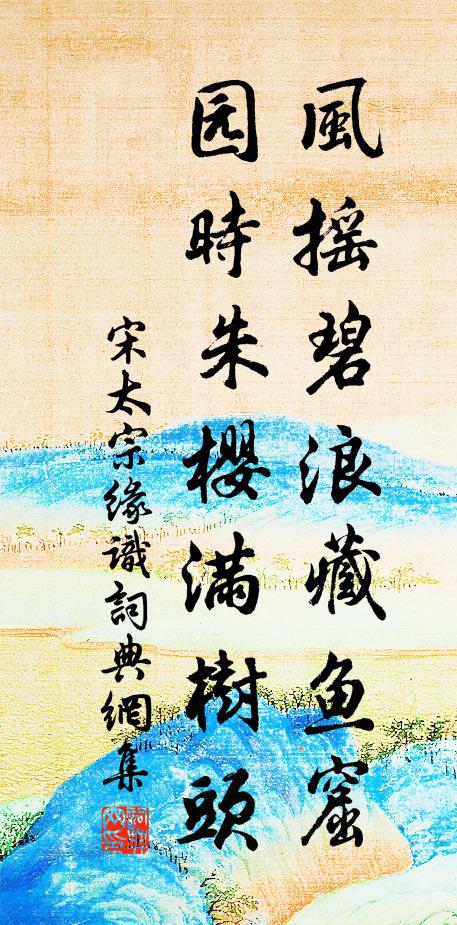 風摇碧浪藏鱼窟
园時朱櫻满樹頭
宋太宗缘識詞典網集